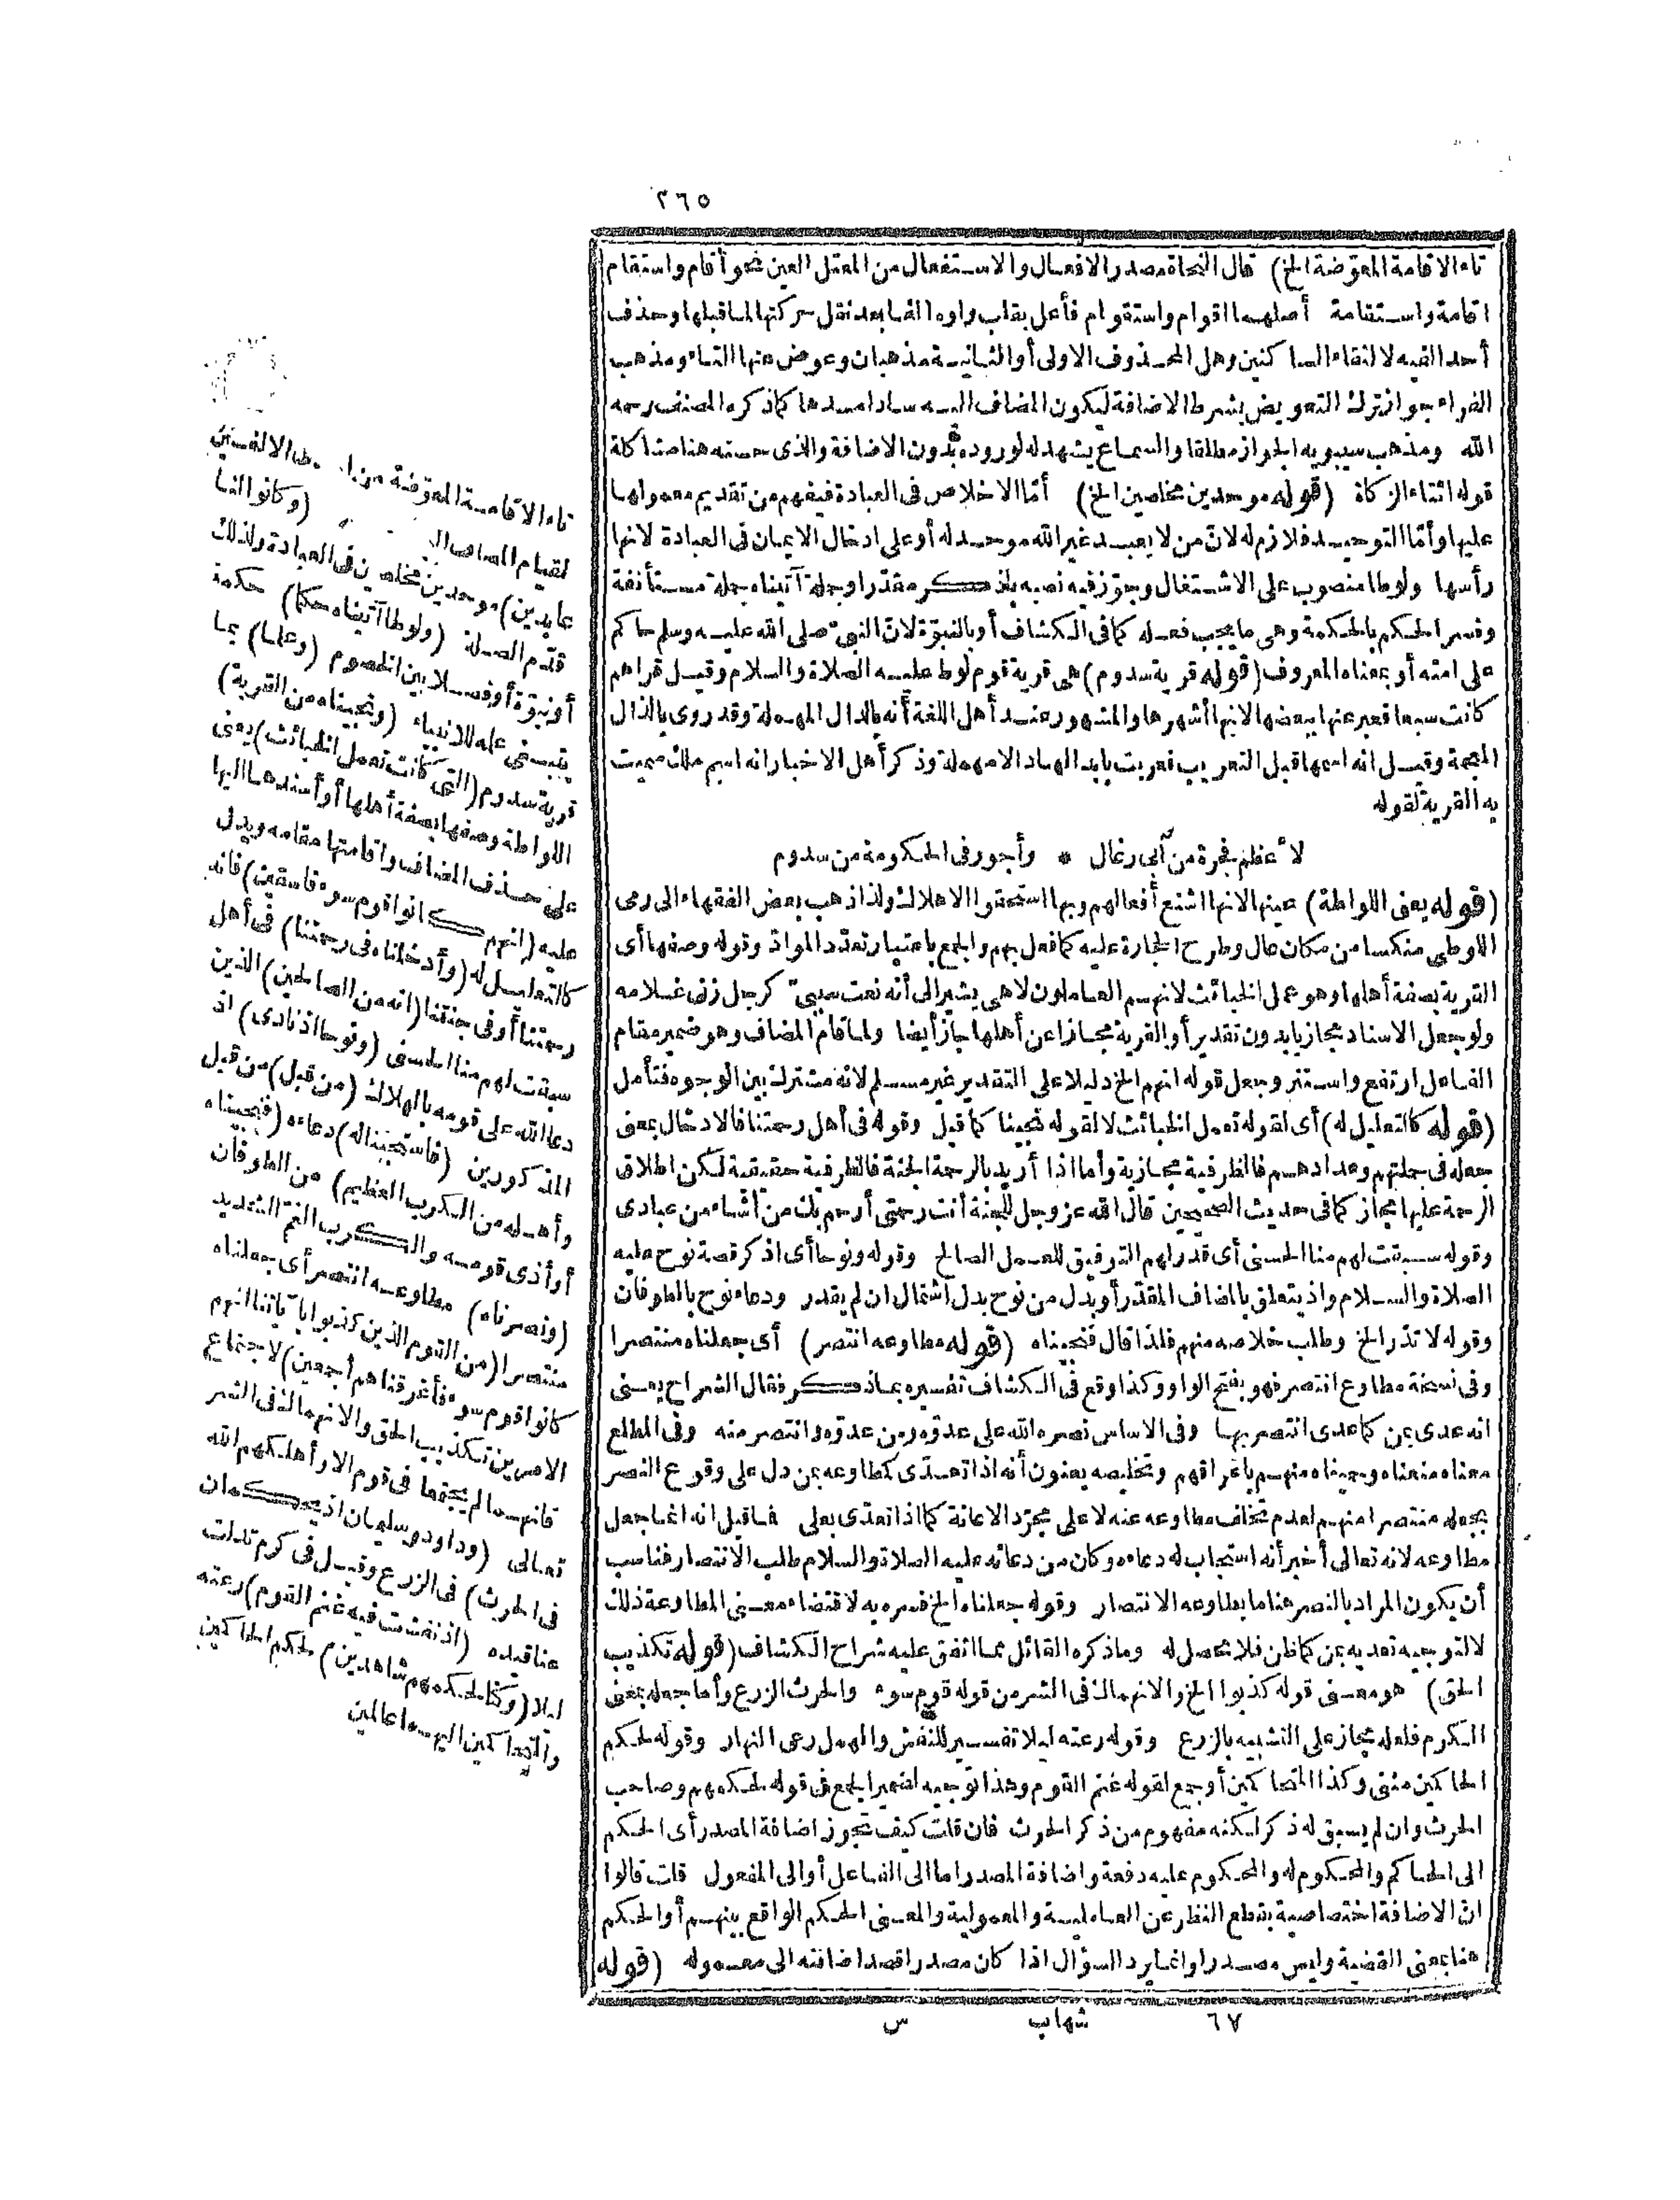 ٢٦٥
تاء الاقامة المعوّضة الخ) قال النحاة مصدر الافعال والاستفعال من المعتل العين نحو أقام واستقام
اقامة واستقامة أصلهما اقوام واستقوام فأعل بقلب واوه الفا بعد نقل حركتها لما قبلها وحذف
أحد الفيه لالتقاء الساكنين وهل المحذوف الاولى أو الثانية مذهبان وعوض عنها التاء ومذهب
الفراء جواز ترك التعويض بشرط الاضافة ليكون المضاف اليه سادا مسدها كما ذكره المصنف رحمه
الله ومذهب سيبويه الجواز مطلقا والسماع يشهد له لوروده بدون الاضافة والذى حسنه هنا مشاكلة
قوله ايتاء الزكاة (قوله موحدين مخلصين الخ) أمّا الاخلاص فى العبادة فيفهم من تقديم معمولها
عليها وأمّا التوحيد فلازم له لانّ من لا يعبد غير الله موحد له أو على ادخال الايمان فى العبادة لانها
رأسها ولوطا منصوب على الاشتغال وجوّز فيه نصبه باذكر مقدّرا وجملة آتيناه جملة مستأنفة
وفسر الحكم بالحكمة وهى ما يجب فعله كما فى الكشاف أو بالنبوّة لانّ النبىّ صلى الله عليه وسلم حاكم
على امته أو بمعناه المعروف (قوله قرية سدوم) هى قرية قوم لوط عليه الصلاة والسلام وقيل قراهم
كانت سبعا فعبر عنها ببعضها لانها أشهرها والمشهور عند أهل اللغة أنه بالدال المهملة وقد روى بالذال
المعجمة وقيل انه اسمها قبل التعريب فعربت بابدالها دالا مهملة وذكر أهل الاخبار انه اسم ملك سميت
به القرية لقوله
لاعظم فجرة من أبى رغال * وأجور فى الحكومة من سدوم
(قوله يعنى اللواطة) عينها لانها اشنع أفعالهم وبها استحقوا الاهلاك ولذا ذهب بعض الفقهاء الى رمى
اللوطى منكسا من مكان عال وطرح الحجارة عليه كما فعل بهم والجمع باعتبار تعدّد الموادّ وقوله وصفها أى
القرية بصفة أهلها وهو عمل الخبائث لانهم العاملون لا هى يشير الى أنه نعت سببىّ كرجل زنى غلامه
ولو جعل الاسناد مجازيا بدون تقدير أو القرية مجازا عن أهلها جاز أيضا ولما قام المضاف وهو ضمير مقام
الفاعل ارتفع واستتر وجعل قوله انهم الخ دليلا على التقدير غير مسلم لانه مشترك بين الوجوه فتأمل
(قوله كالتعليل له) أى لقوله تعمل الخبائث لا لقوله نجينا كما قيل وقوله فى أهل رحمتنا فالادخال بمعنى
جعله فى جملتهم وعدادهم فالظرفية مجازية وأما اذا أريد بالرحمة الجنة فالظرفية حقيقية لكن اطلاق
الرحمة عليها مجاز كما فى حديث الصحيحين قال الله عز وجل للجنة أنت رحمتى أرحم بك من أشاء من عبادى
وقوله سبقت لهم منا الحسنى أى قدّر لهم التوفيق للعمل الصالح وقوله ونوحا أى اذكر قصة نوح عليه
الصلاة والسلام واذ يتعلق بالمضاف المقدّر أو بدل من نوح بدل اشتمال ان لم يقدر ودعاء نوح بالطوفان
وقوله لا تذر الخ وطلب خلاصه منهم فلذا قال فنجيناه (قوله مطاوعه انتصر) أى جعلناه منتصرا
وفى نسخة مطاوع انتصر فهو بفتح الواو وكذا وقع فى الكشاف تفسيره بما ذكر فقال الشراح يعنى
انه عدى بمن كما عدى انتصر بها وفى الاساس نصره الله على عدوّه ومن عدوّه وانتصر منه وفى المطلع
معناه منعناه وحميناه منهم باغراقهم وتخليصه يعنون أنه اذا تعدّى كمطاوعه بمن دل على وقوع النصر
بجعله منتصرا منهم لعدم تخلف مطاوعه عنه لا على مجرّد الاعانة كما اذا تعدّى بعلى فما قيل انه انما جعل
مطاوعه لانه تعالى أخبر أنه استجاب له دعاءه وكان من دعائه عليه الصلاة والسلام طلب الانتصار فناسب
أن يكون المراد بالنصر هنا ما يطاوعه الانتصار وقوله جعلناه الخ فسره به لاقتضاء معنى المطاوعة ذلك
لا لتوجيه تعديه بمن كما ظن فلا محصل له وما ذكره القائل مما اتفق عليه شراح الكشاف (قوله تكذيب
الحق) هو معنى قوله كذبوا الخ والانهماك فى الشر من قوله قوم سوء والحرث الزرع وأما جعله بمعنى
الكرم فلعله مجاز على التشبيه بالزرع وقوله رعته ليلا تفسير للنفش والهمل رعى النهار وقوله لحكم
الحاكمين مثنى وكذا المتحاكمين أو جمع لقوله غنم القوم وهذا توجيه لضمير الجمع فى قوله لحكمهم وصاحب
الحرث وان لم يسبق له ذكر لكنه مفهوم من ذكر الحرث فان قلت كيف تجوز اضافة المصدر أى الحكم
الى الحاكم والمحكوم له والمحكوم عليه دفعة واضافة المصدر اما الى الفاعل أو الى المفعول قلت قالوا
انّ الاضافة اختصاصية بقطع النظر عن العاملية والمعمولية والمعنى الحكم الواقع بينهم أو الحكم
هنا بمعنى القضية وليس مصدرا وانما يرد السؤال اذا كان مصدرا قصد اضافته الى معموله (قوله
٦٧ شهاب س
تاء الاقامة المعوّضة من الالفين
لقيام المضاف (وكانوا لنا
عابدين) موحدين مخلصين فى العبادة ولذلك
قدّم الصلة (ولوطا آتيناه حكما) حكمة
أو نبوّة أو فصلا بين الخصوم (وعلما) بما
ينبغى علمه للانبياء (ونجيناه من القرية)
قرية سدوم (التى كانت تعمل الخبائث) يعنى
اللواطة وصفها بصفة أهلها أو أسندها اليها
على حذف المضاف واقامتها مقامه ويدل
عليه (انهم كانوا قوم سوء فاسقين) فانه
كالتعليل له (وأدخلناه فى رحمتنا) فى أهل
رحمتنا أو فى جنتنا (انه من الصالحين) الذين
سبقت لهم منا الحسنى (ونوحا اذ نادى) اذ
دعا الله على قومه بالهلاك (من قبل) من قبل
المذكورين (فاستجبنا له) دعاءه (فنجيناه
وأهله من الكرب العظيم) من الطوفان
أو أذى قومه والكرب الغمّ الشديد
(ونصرناه) مطاوعه انتصر أى جعلناه
منتصرا (من القوم الذين كذبوا بآياتنا انهم
كانوا قوم سوء فأغرقناهم أجمعين) لاجتماع
الامرين تكذيب الحق والانهماك فى الشر
فانهما لم يجتمعا فى قوم الا وأهلكهم الله
تعالى (وداود وسليمان اذ يحكمان
فى الحرث) فى الزرع وقيل فى كرم تدلت
عناقيده (اذ نفشت فيه غنم القوم) رعته
ليلا (وكنا لحكمهم شاهدين) لحكم الحاكمين
والمتحاكمين اليهما عالمين